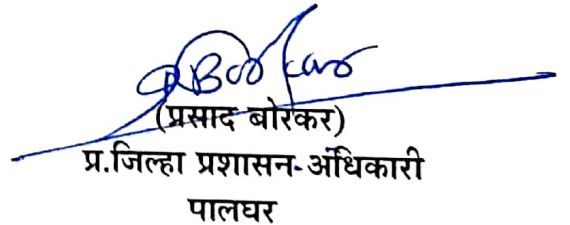 (प्रसाद बोरकर)
प्र.जिल्हा प्रशासन-अधिकारी
पालघर